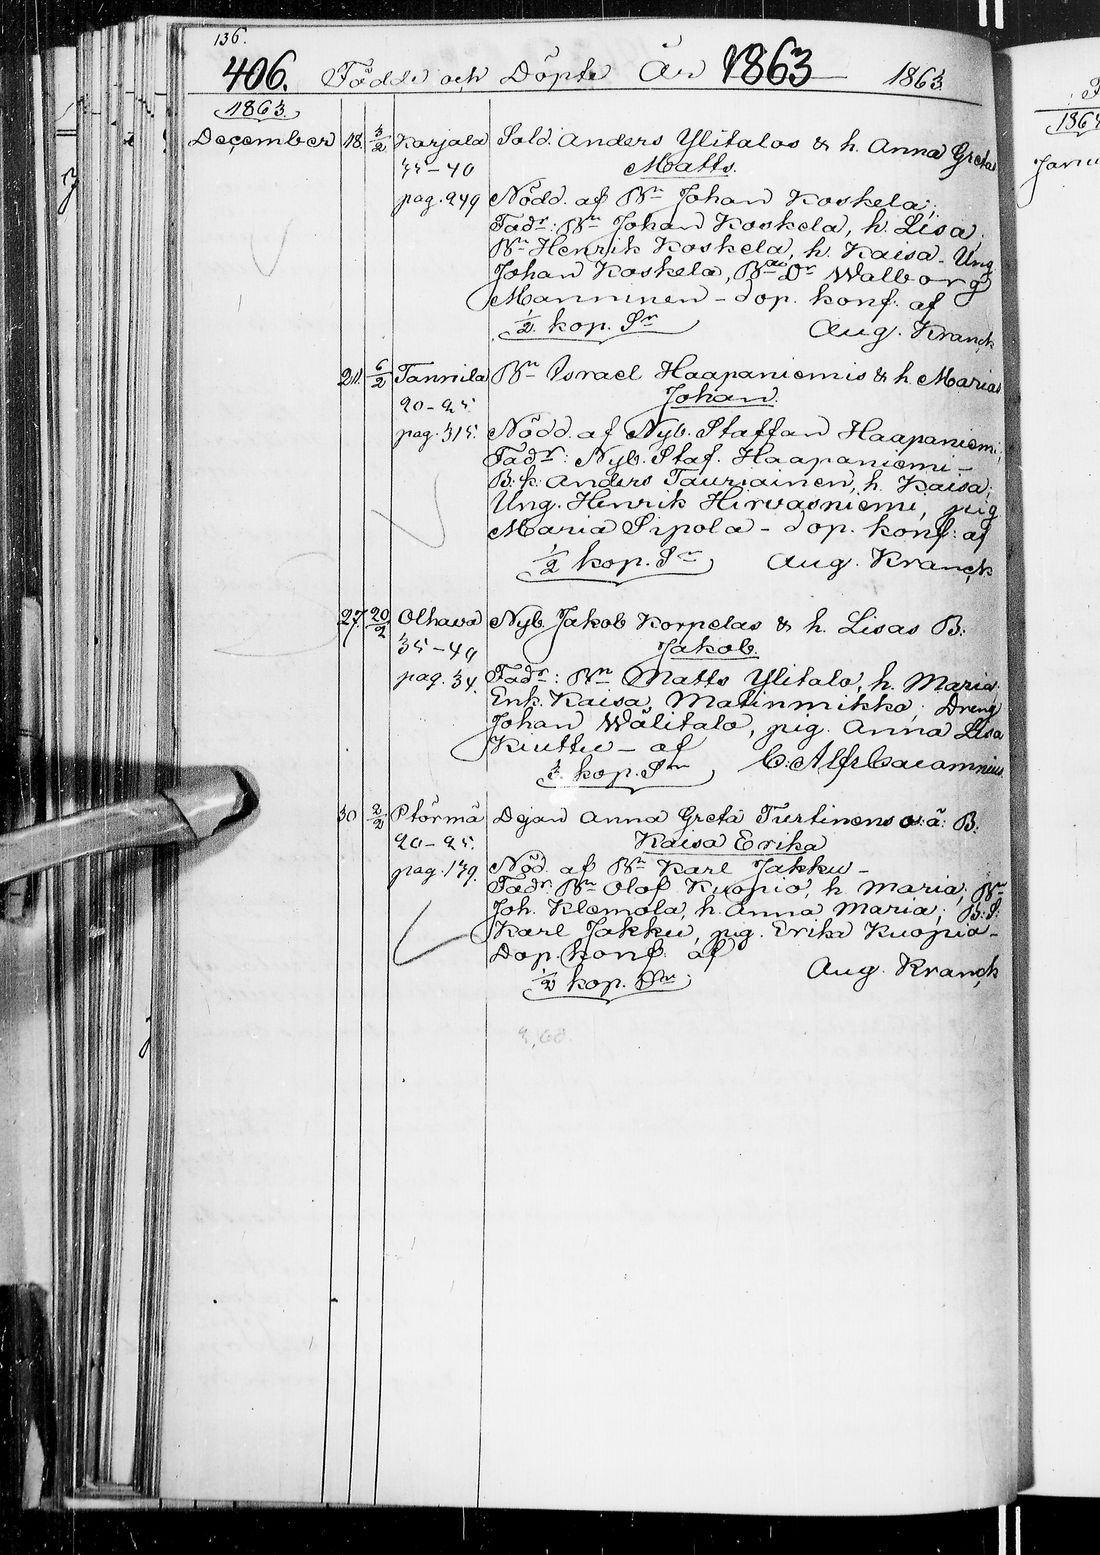 136.
406. Födde och Döpte År 1863 1863
1863.
December 18. 3/2 Karjala Sold. Anders Ylitalos & h. Anna Gretas
35-40 Matts.
pag. 249 Nödd. af Bn Johan Koskela;
Fadr: Bn Johan Koskela, h. Lisa,
Bn Henrik Koskela, h. Kaisa - Ung
Johan Koskela, Bde Dr Walborg
Manninen - dop. konf. af
1/2 kop. Sr Aug. Kranck
21. 6/2 Tannila Bn Israel Haapaniemis & h. Marias
20-25. Johan.
pag. 315. Nödd. af Nyb. Staffan Haapaniemi;
Fadr: Nyb. Staf. Haapaniemi -
B.k. Anders Tauriainen, h. Kaisa;
Ung. Henrik Hirvasniemi, pig
Maria Sipola - dop. konf. af
1/2 kop. Sr Aug. Kranck
27. 20/2 Olhava Nyb. Jakob Korpelas & h. Lisas B:
35-40 Jakob.
pag. 34. Fadr: Bn Matts Ylitalo, h. Maria.
Enk. Kaisa Matinmikko; Dreng
Johan Wälitalo, pig. Anna Lisa
Kuttu - af
kop. Sr C. Alfr Cajamnius
30 2/2 Ptörmä Dejan Anna Greta Turtinens o:ä: B:
20-25. Kaisa Erika
pag. 139. Nöd. af Bn Karl Jakku -
Fadr. Bn Olof Kuopio, h. Maria, Bn
Joh. Klemola, h. Anna Maria; B:S:
Karl Jakku, pig. Erika Kuopio -
Dop. konf. af
1/2 kop. Sr. Aug. Kranck